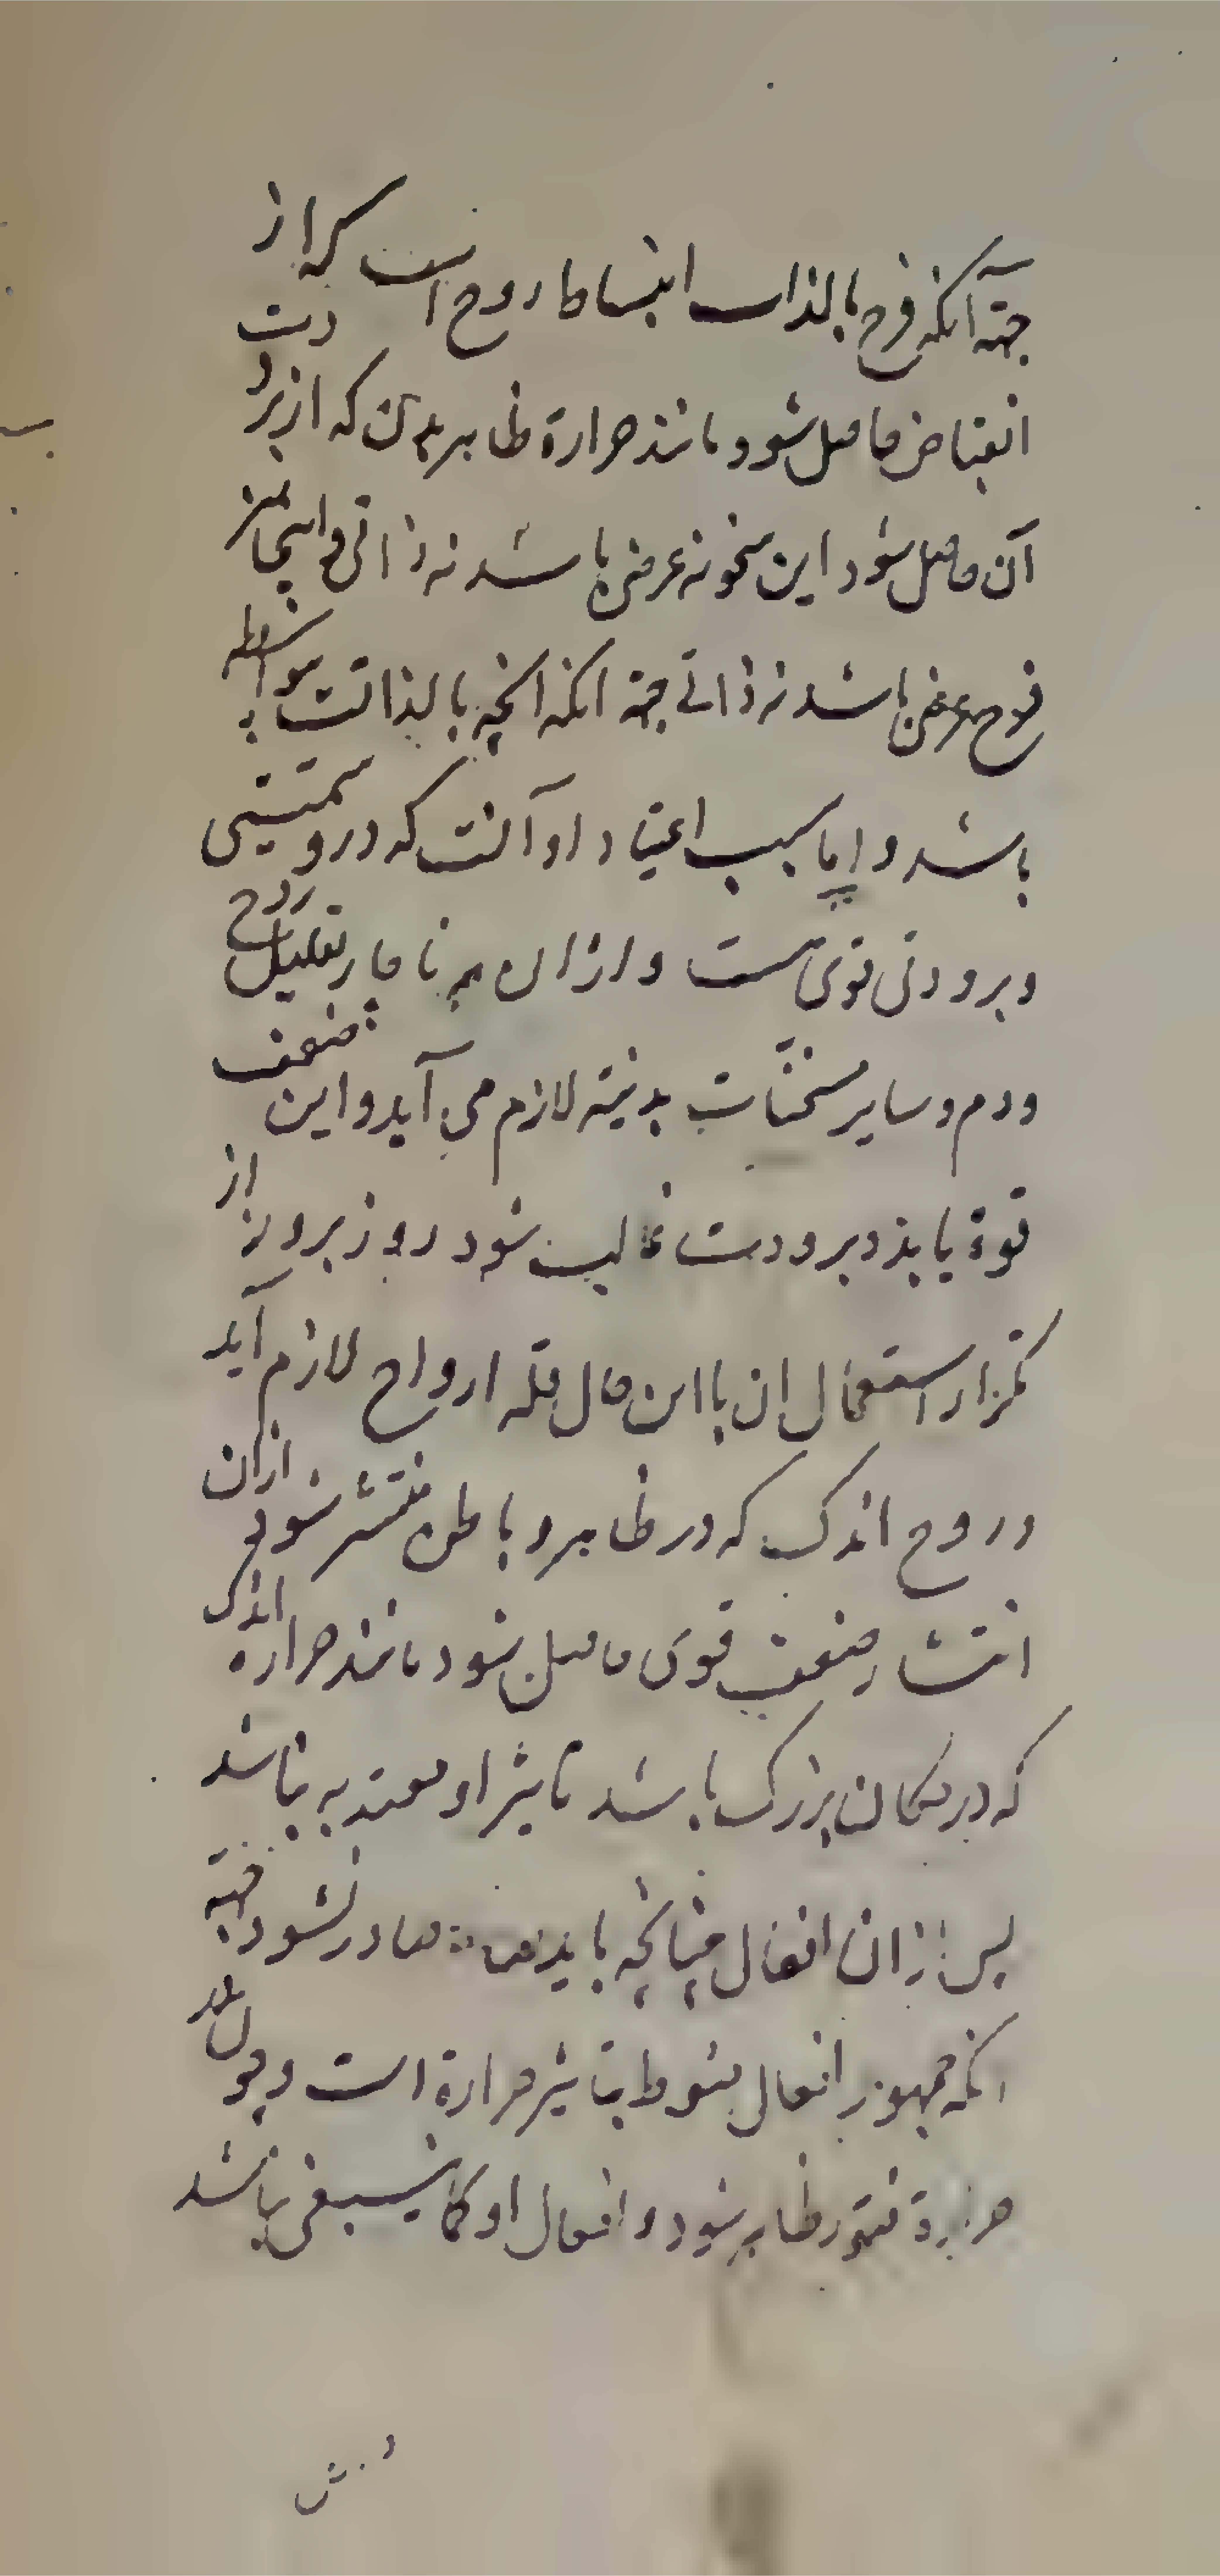 جهة آنکه فرح بالذات انبساط روح است که از
انقباض حاصل شود مانند حرارة ظاهر بدن که از برودت
آن حاصل شود این سخونه عرضی باشد نه ذاتی و اینجا نیز
فرح عرضی باشد نه ذاتی جهة انکه انچه بالذاتست بواسطه
باشد و اما سبب اعتیاد او آنست که درو سمیتی
و برودتی قوی هست و ازان ناچار تقلیل روح
و دم و سایر مسخنات بدنیة لازم می آید و این ضعف
قوة یابد و برودت غالب شود روز بروز از
تکرار استعمال ان با این حال قله ارواح لازم آید
و روح اندک که در ظاهر و باطن منتشر شود ازان
انتشار ضعف قوی حاصل شود مانند حرارة اندک
که در مکان بزرک باشد تاثیر او معتد به نباشد
پس ازان افعال چنانچه باید صادر نشود جهة
انکه جمهور افعال منوط بتاثیر حرارة است و چون در
حرارة فتور ظاهر شود افعال او کما ینبغی نباشد